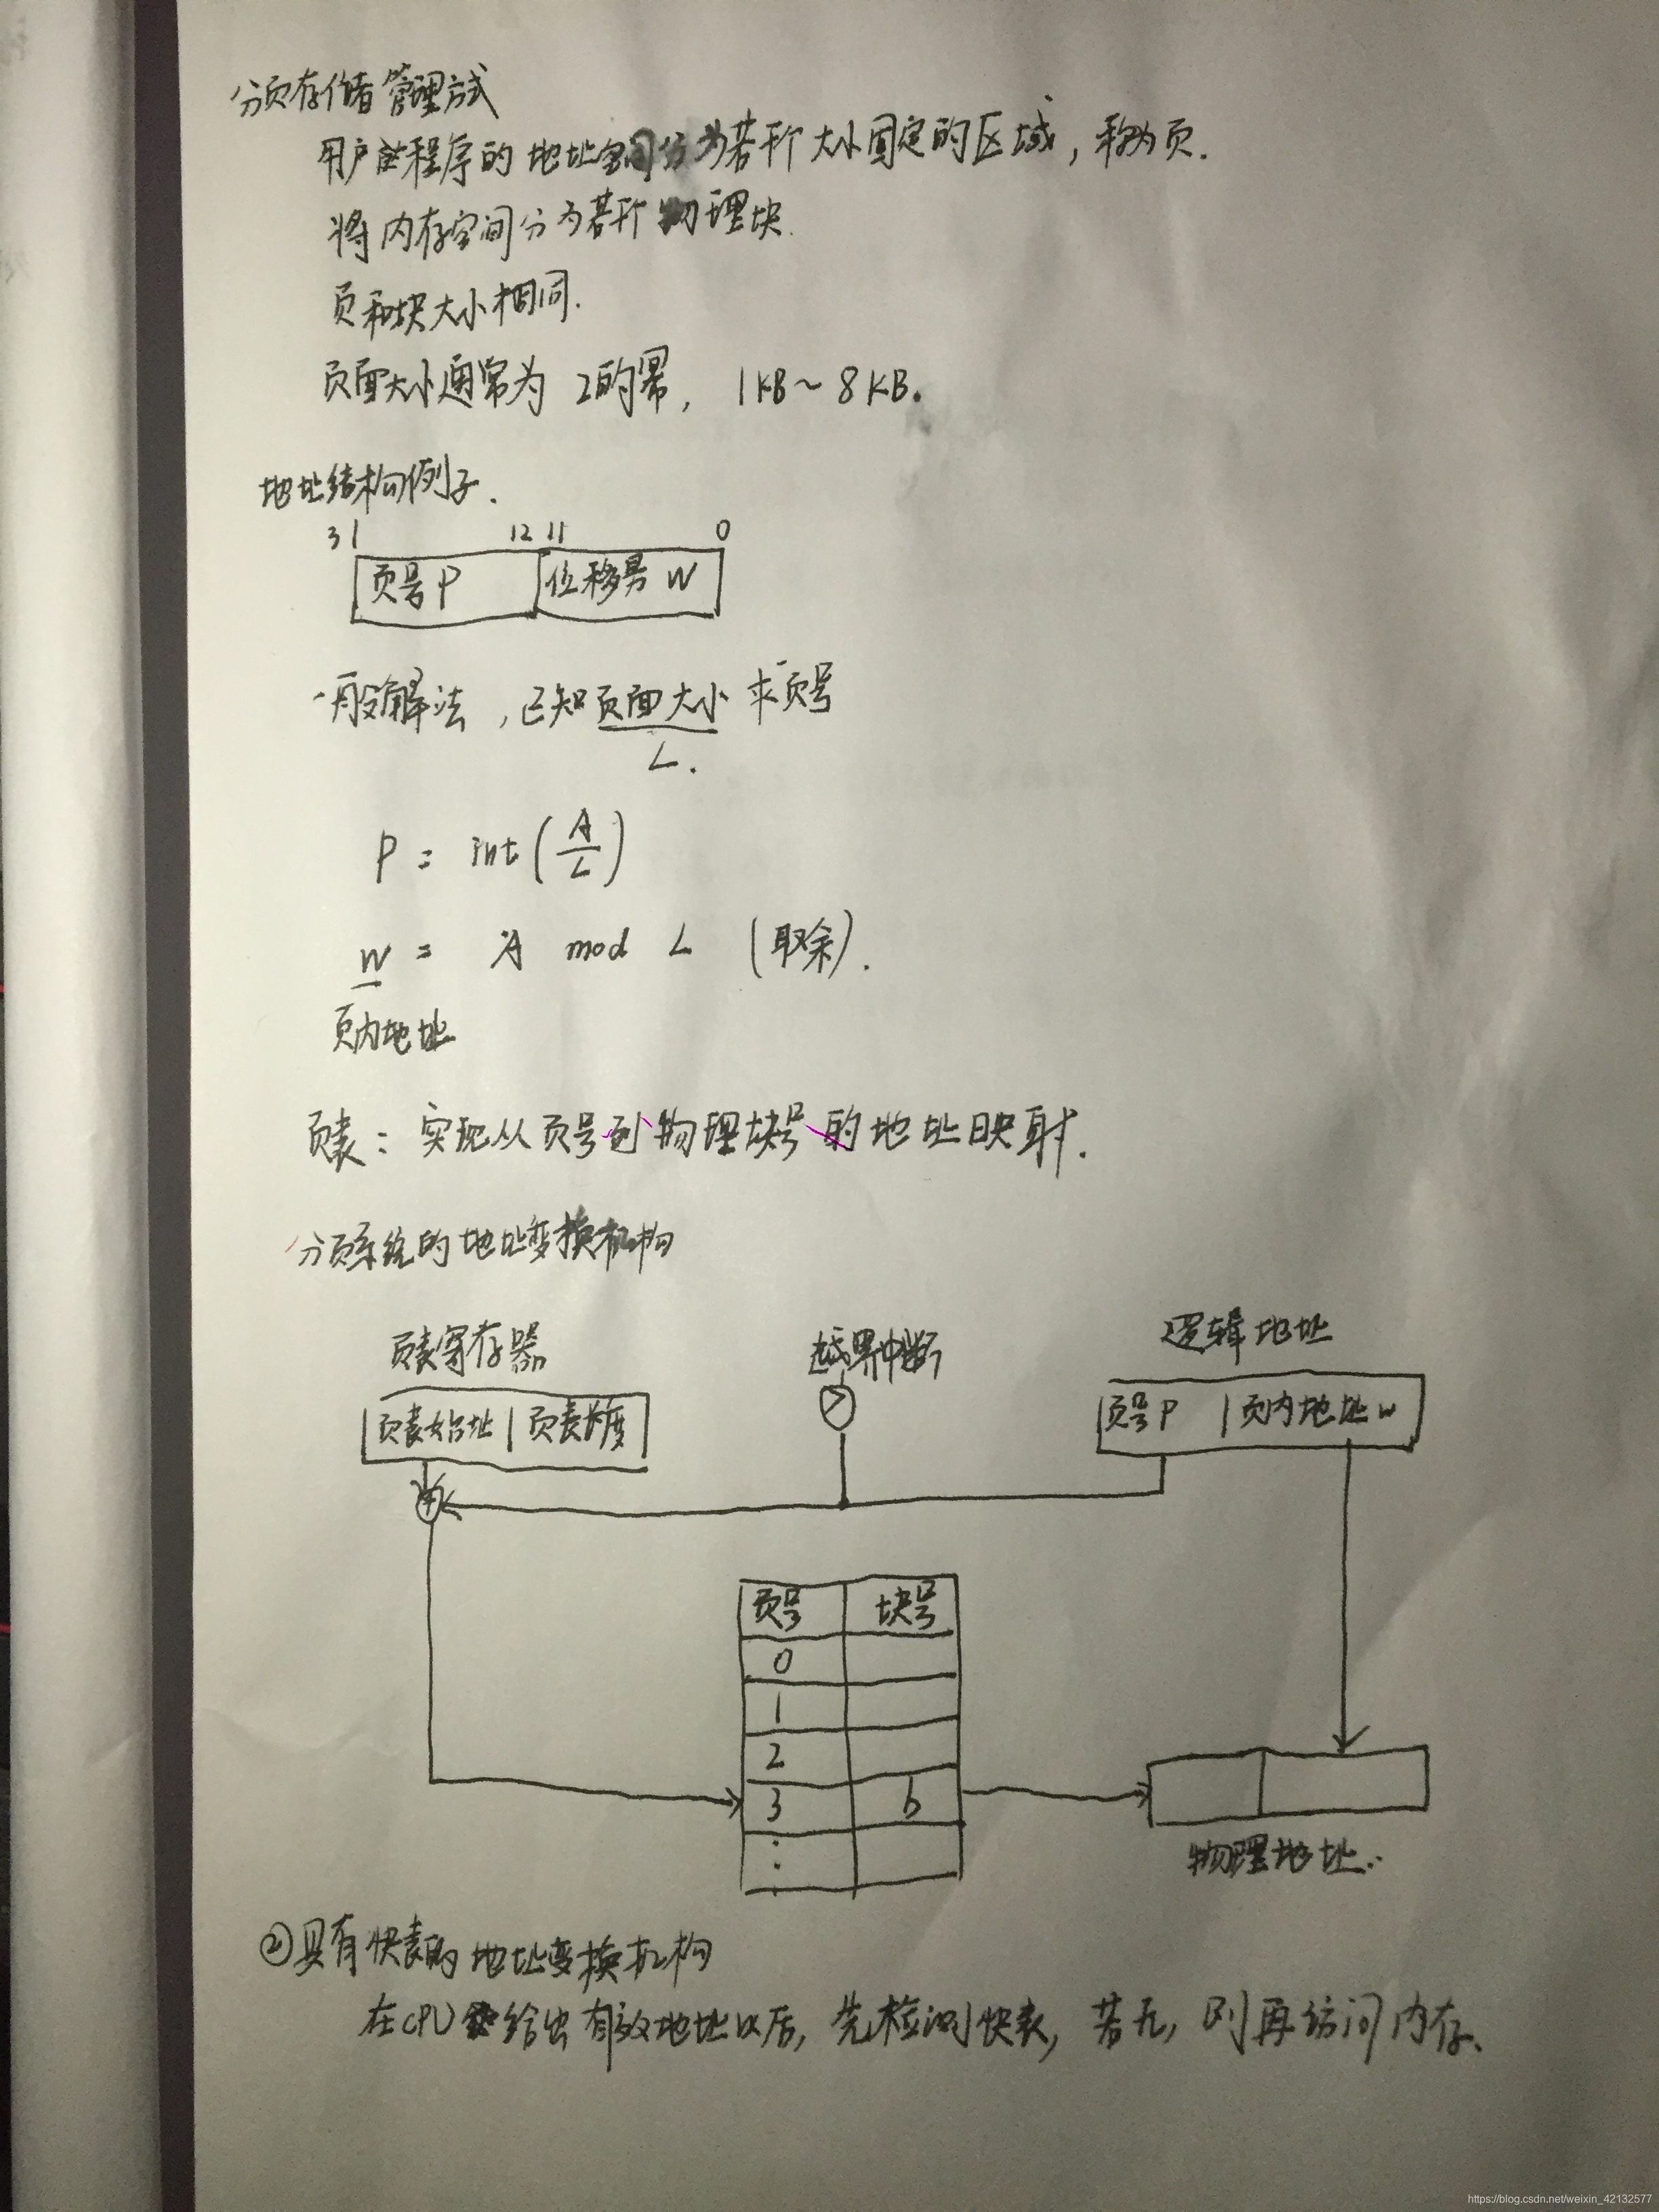 分页存储管理方式
用户程序的地址空间分为若干个大小固定的区域，称为页.
将内存空间分为若干个物理块.
页和块大小相同.
页面大小通常为 2的幂, 1KB~8KB.
地址结构例子.
31 12 11 0
页号 P 位移号 W
一般解法，已知页面大小求页号
L.
P = int(A/L)
W = A mod L (取余).
页内地址
页表：实现从页号到物理块号的地址映射.
分页系统的地址变换机构
页表寄存器 越界中断 逻辑地址
页表始址 页表长度 > 页号P 页内地址w
+
页号 块号
0
1
2
3 b
⋮
物理地址.
②具有快表的地址变换机构
在CPU给出有效地址以后, 先检测快表, 若无, 则再访问内存.
https://blog.csdn.net/weixin_42132577